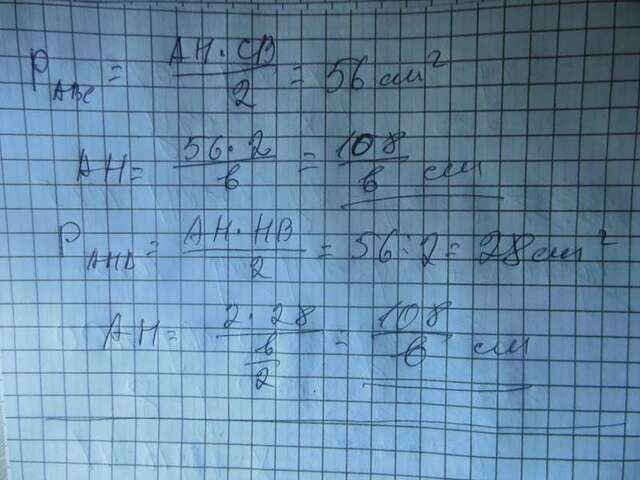 P_ABC = (AH · CB) / 2 = 56 см²
AH = (56 · 2) / b = 108 / b см
P_AHB = (AH · HB) / 2 = 56 : 2 = 28 см²
AH = (2 · 28) / (b / 2) = 108 / b см